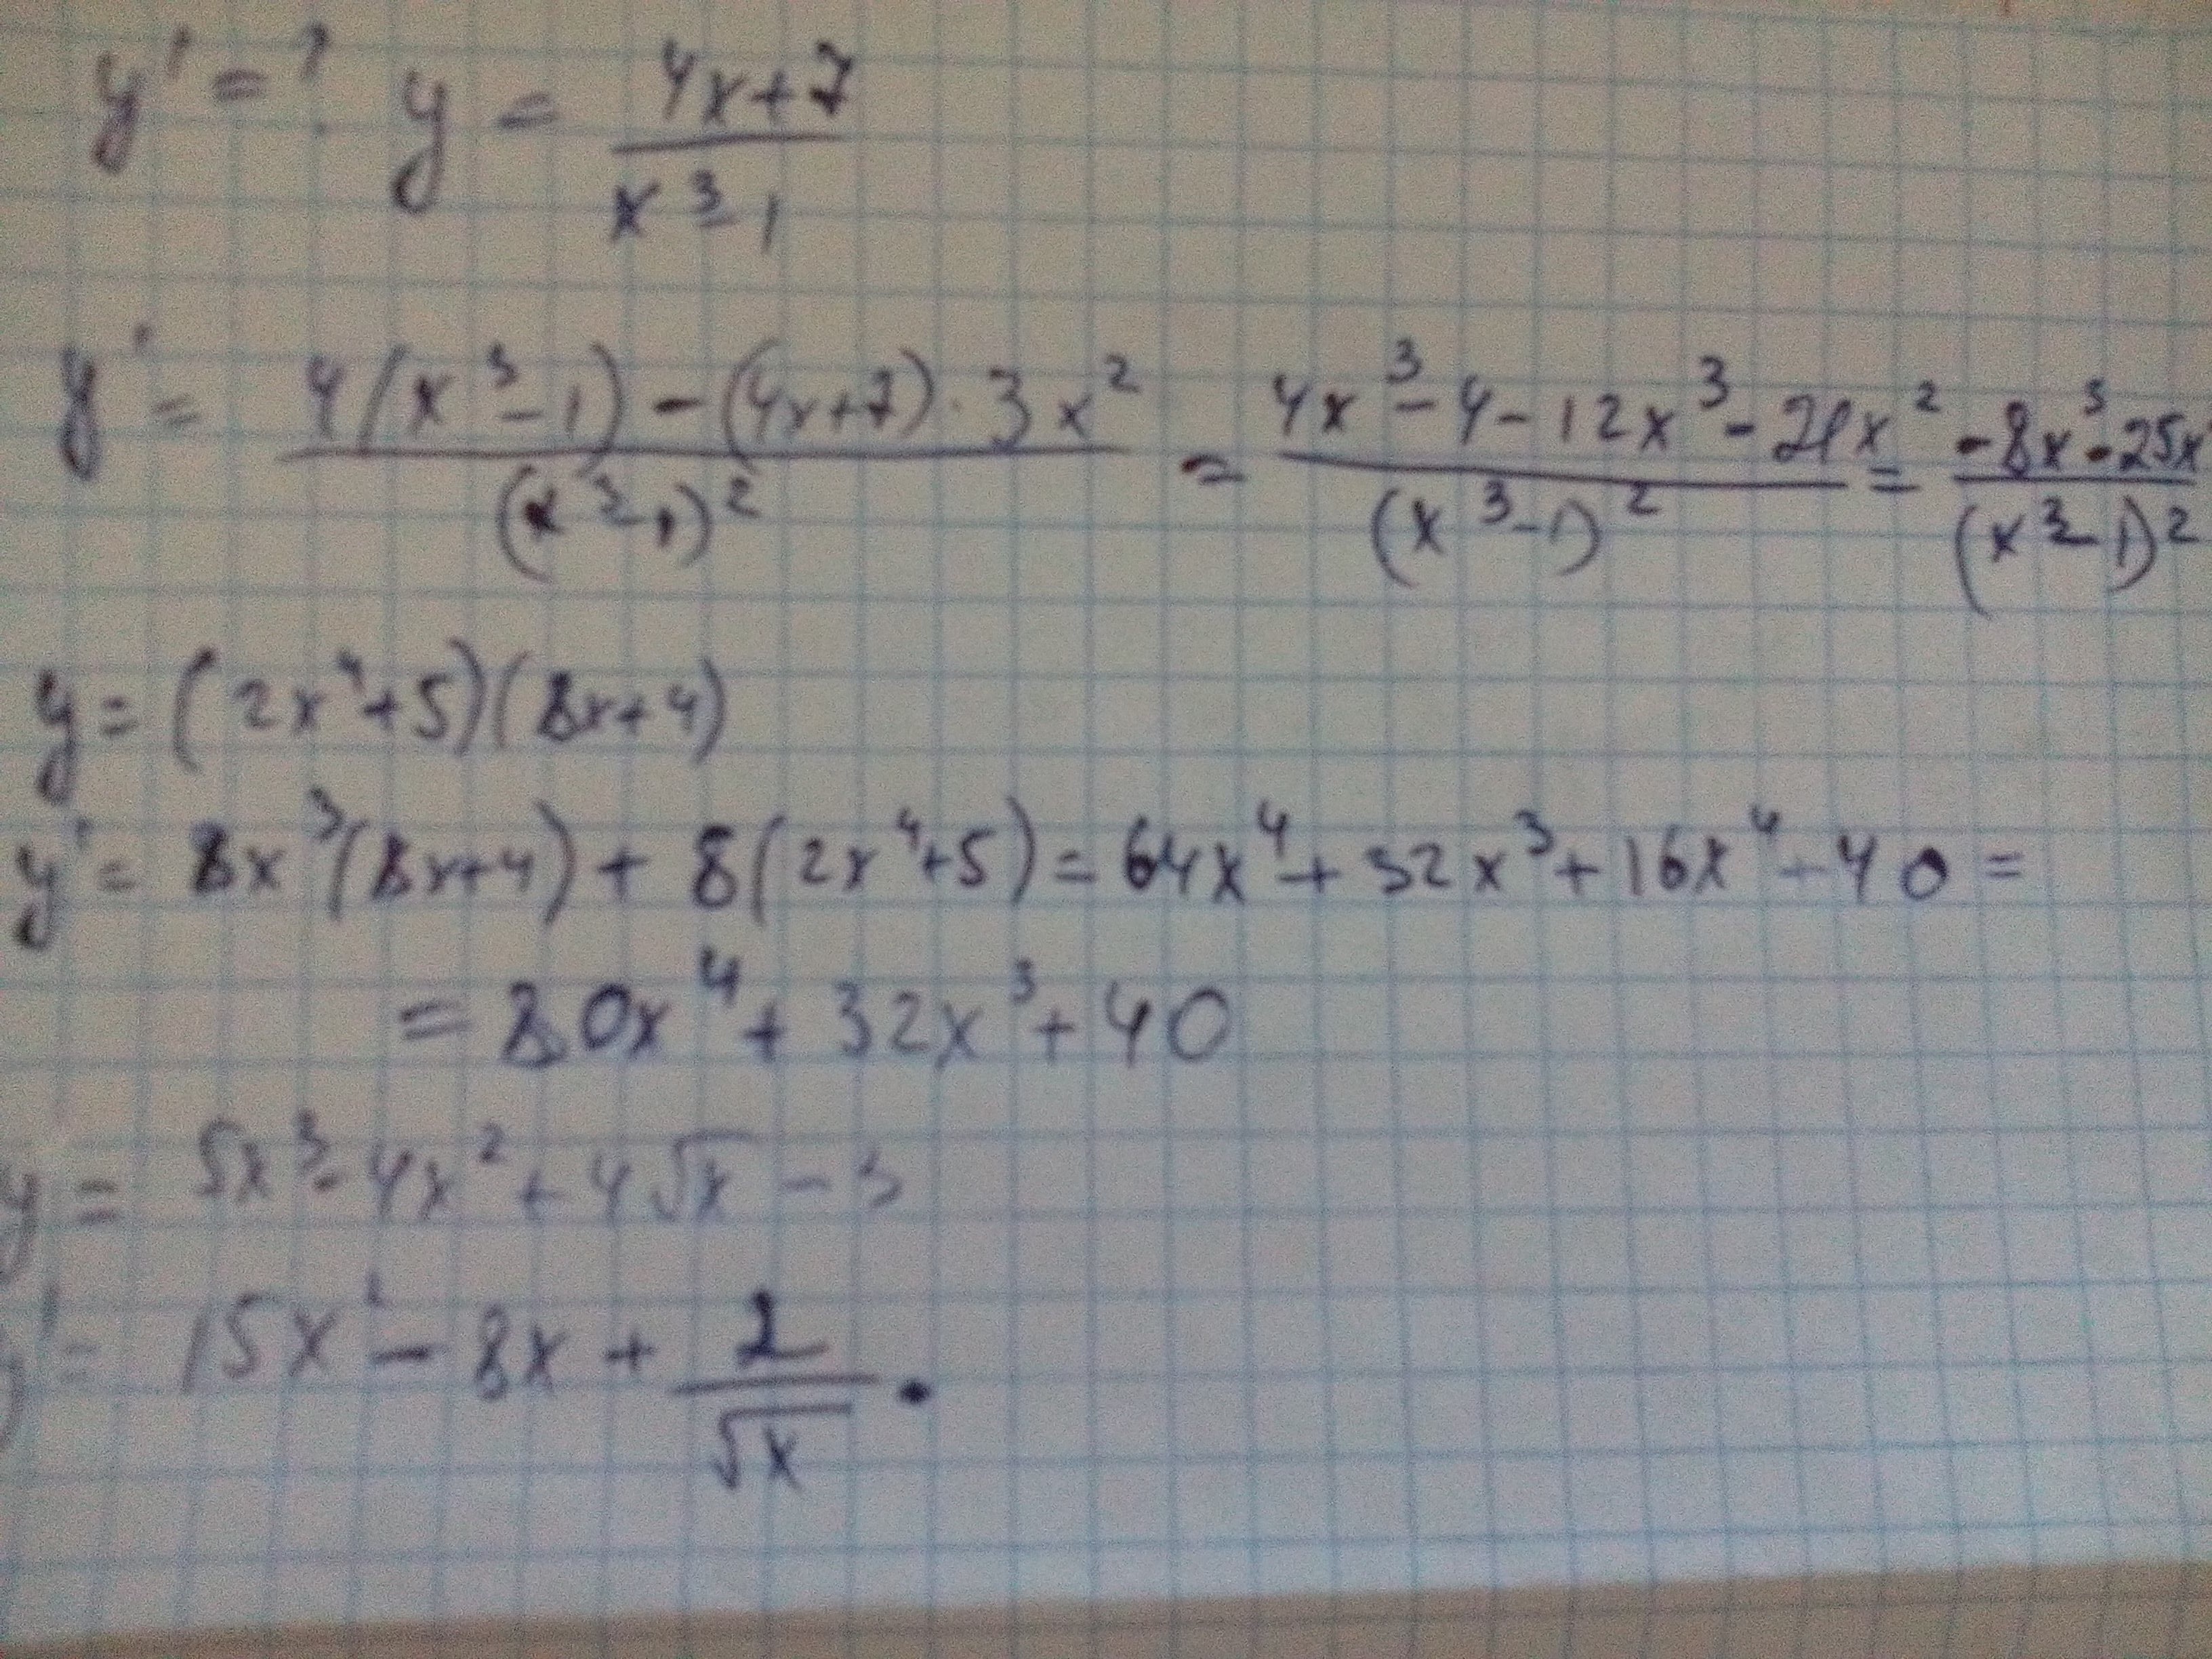 y' = ? y = (4x+7)/(x³-1)
y' = (4(x³-1) - (4x+7)·3x²)/(x³-1)² = (4x³-4-12x³-21x²)/(x³-1)² = (-8x³-25x²)/(x³-1)²
y = (2x⁴+5)(8x+4)
y' = 8x³(8x+4) + 8(2x⁴+5) = 64x⁴ + 32x³ + 16x⁴ + 40 =
= 80x⁴ + 32x³ + 40
y = 5x³ - 4x² + 4√x - 3
y' = 15x² - 8x + 2/√x.